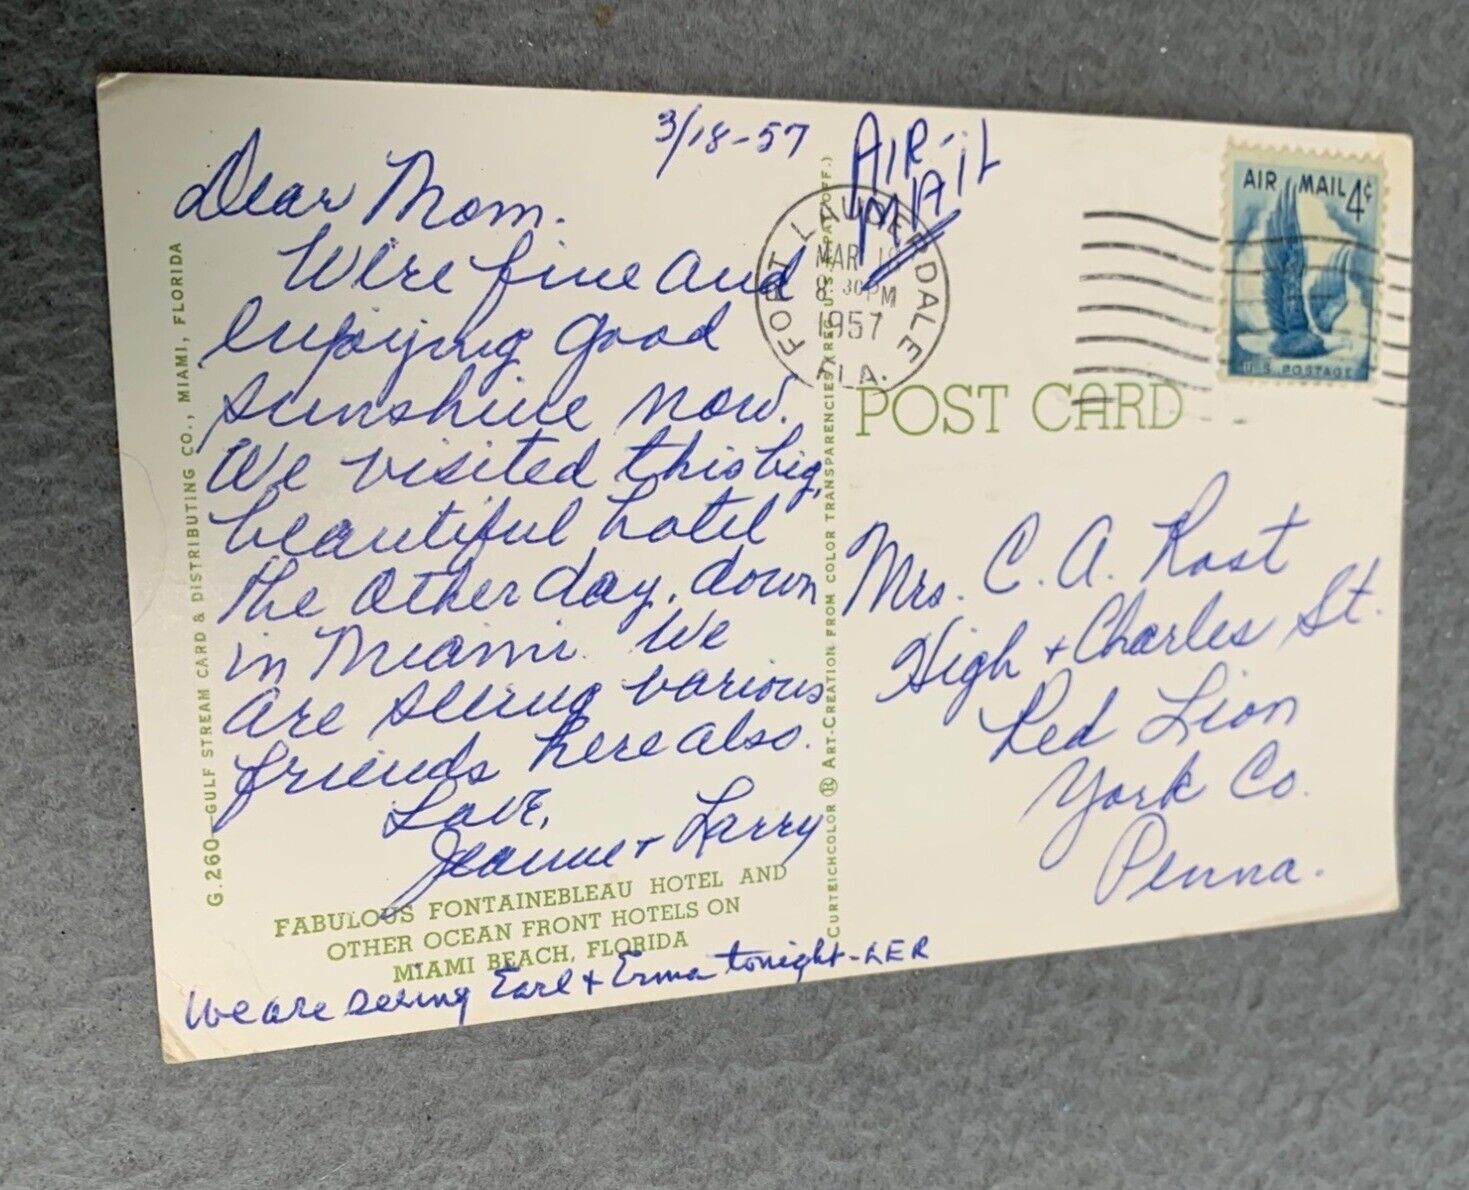 3/18-57
AIR-
MAIL
Dear Mom.
We're fine and
enjoying good
sunshine now.
We visited this big,
beautiful hotel
the other day, down
in Miami. We
are seeing various
friends here also.
Love,
Jeanne + Larry
FABULOUS FONTAINEBLEAU HOTEL AND
OTHER OCEAN FRONT HOTELS ON
MIAMI BEACH, FLORIDA
We are seeing Earl + Erma tonight-LER
G.260—GULF STREAM CARD & DISTRIBUTING CO., MIAMI, FLORIDA
CURTEICHCOLOR ® ART-CREATION FROM COLOR TRANSPARENCIES (REG. U.S. PAT. OFF.)
FORT LAUDERDALE
MAR 18
8 30 PM
1957
FLA.
AIR MAIL 4¢
U.S. POSTAGE
POST CARD
Mrs. C. A. Rost
High + Charles St.
Red Lion
York Co.
Penna.